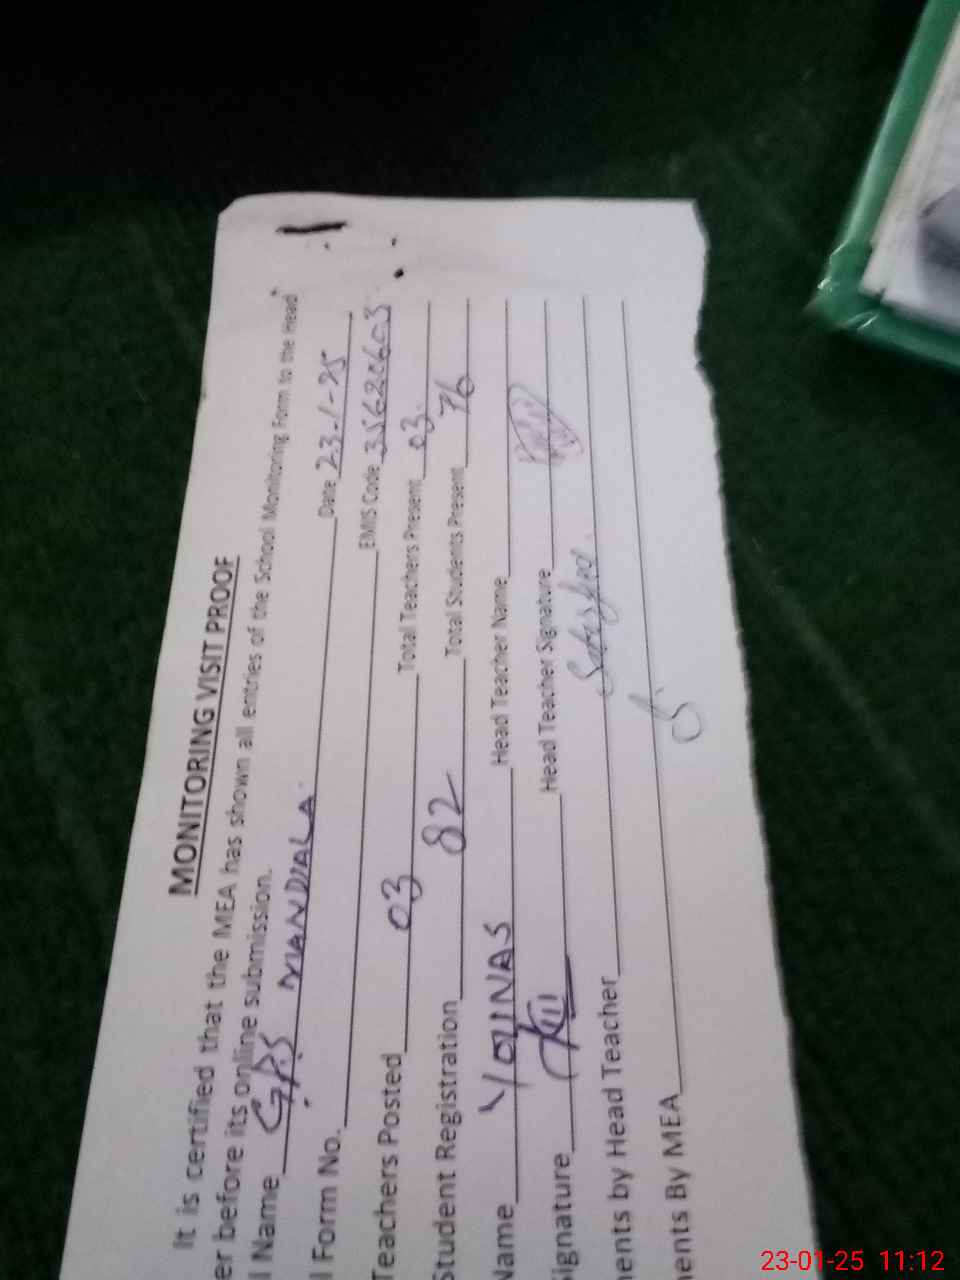 MONITORING VISIT PROOF
It is certified that the MEA has shown all entries of the School Monitoring Form to the Head
er before its online submission.
l Name GPS MANDIALA Date 23-1-25
l Form No. EMIS Code 35620603
Teachers Posted 03 Total Teachers Present 03
Student Registration 82 Total Students Present 76
Name YOUNAS Head Teacher Name
ignature Head Teacher Signature
ents by Head Teacher Satisfied.
ents By MEA
23-01-25 11:12